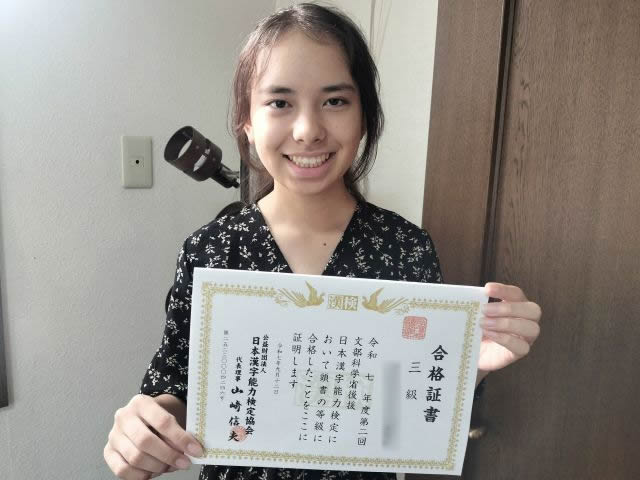 漢検
合格証書
三級
令和 七 年度第二回
文部科学省後援
日本漢字能力検定に
おいて頭書の等級に
合格したことをここに
証明します
令和七年九月十二日
公益財団法人
日本漢字能力検定協会
代表理事 山崎信夫